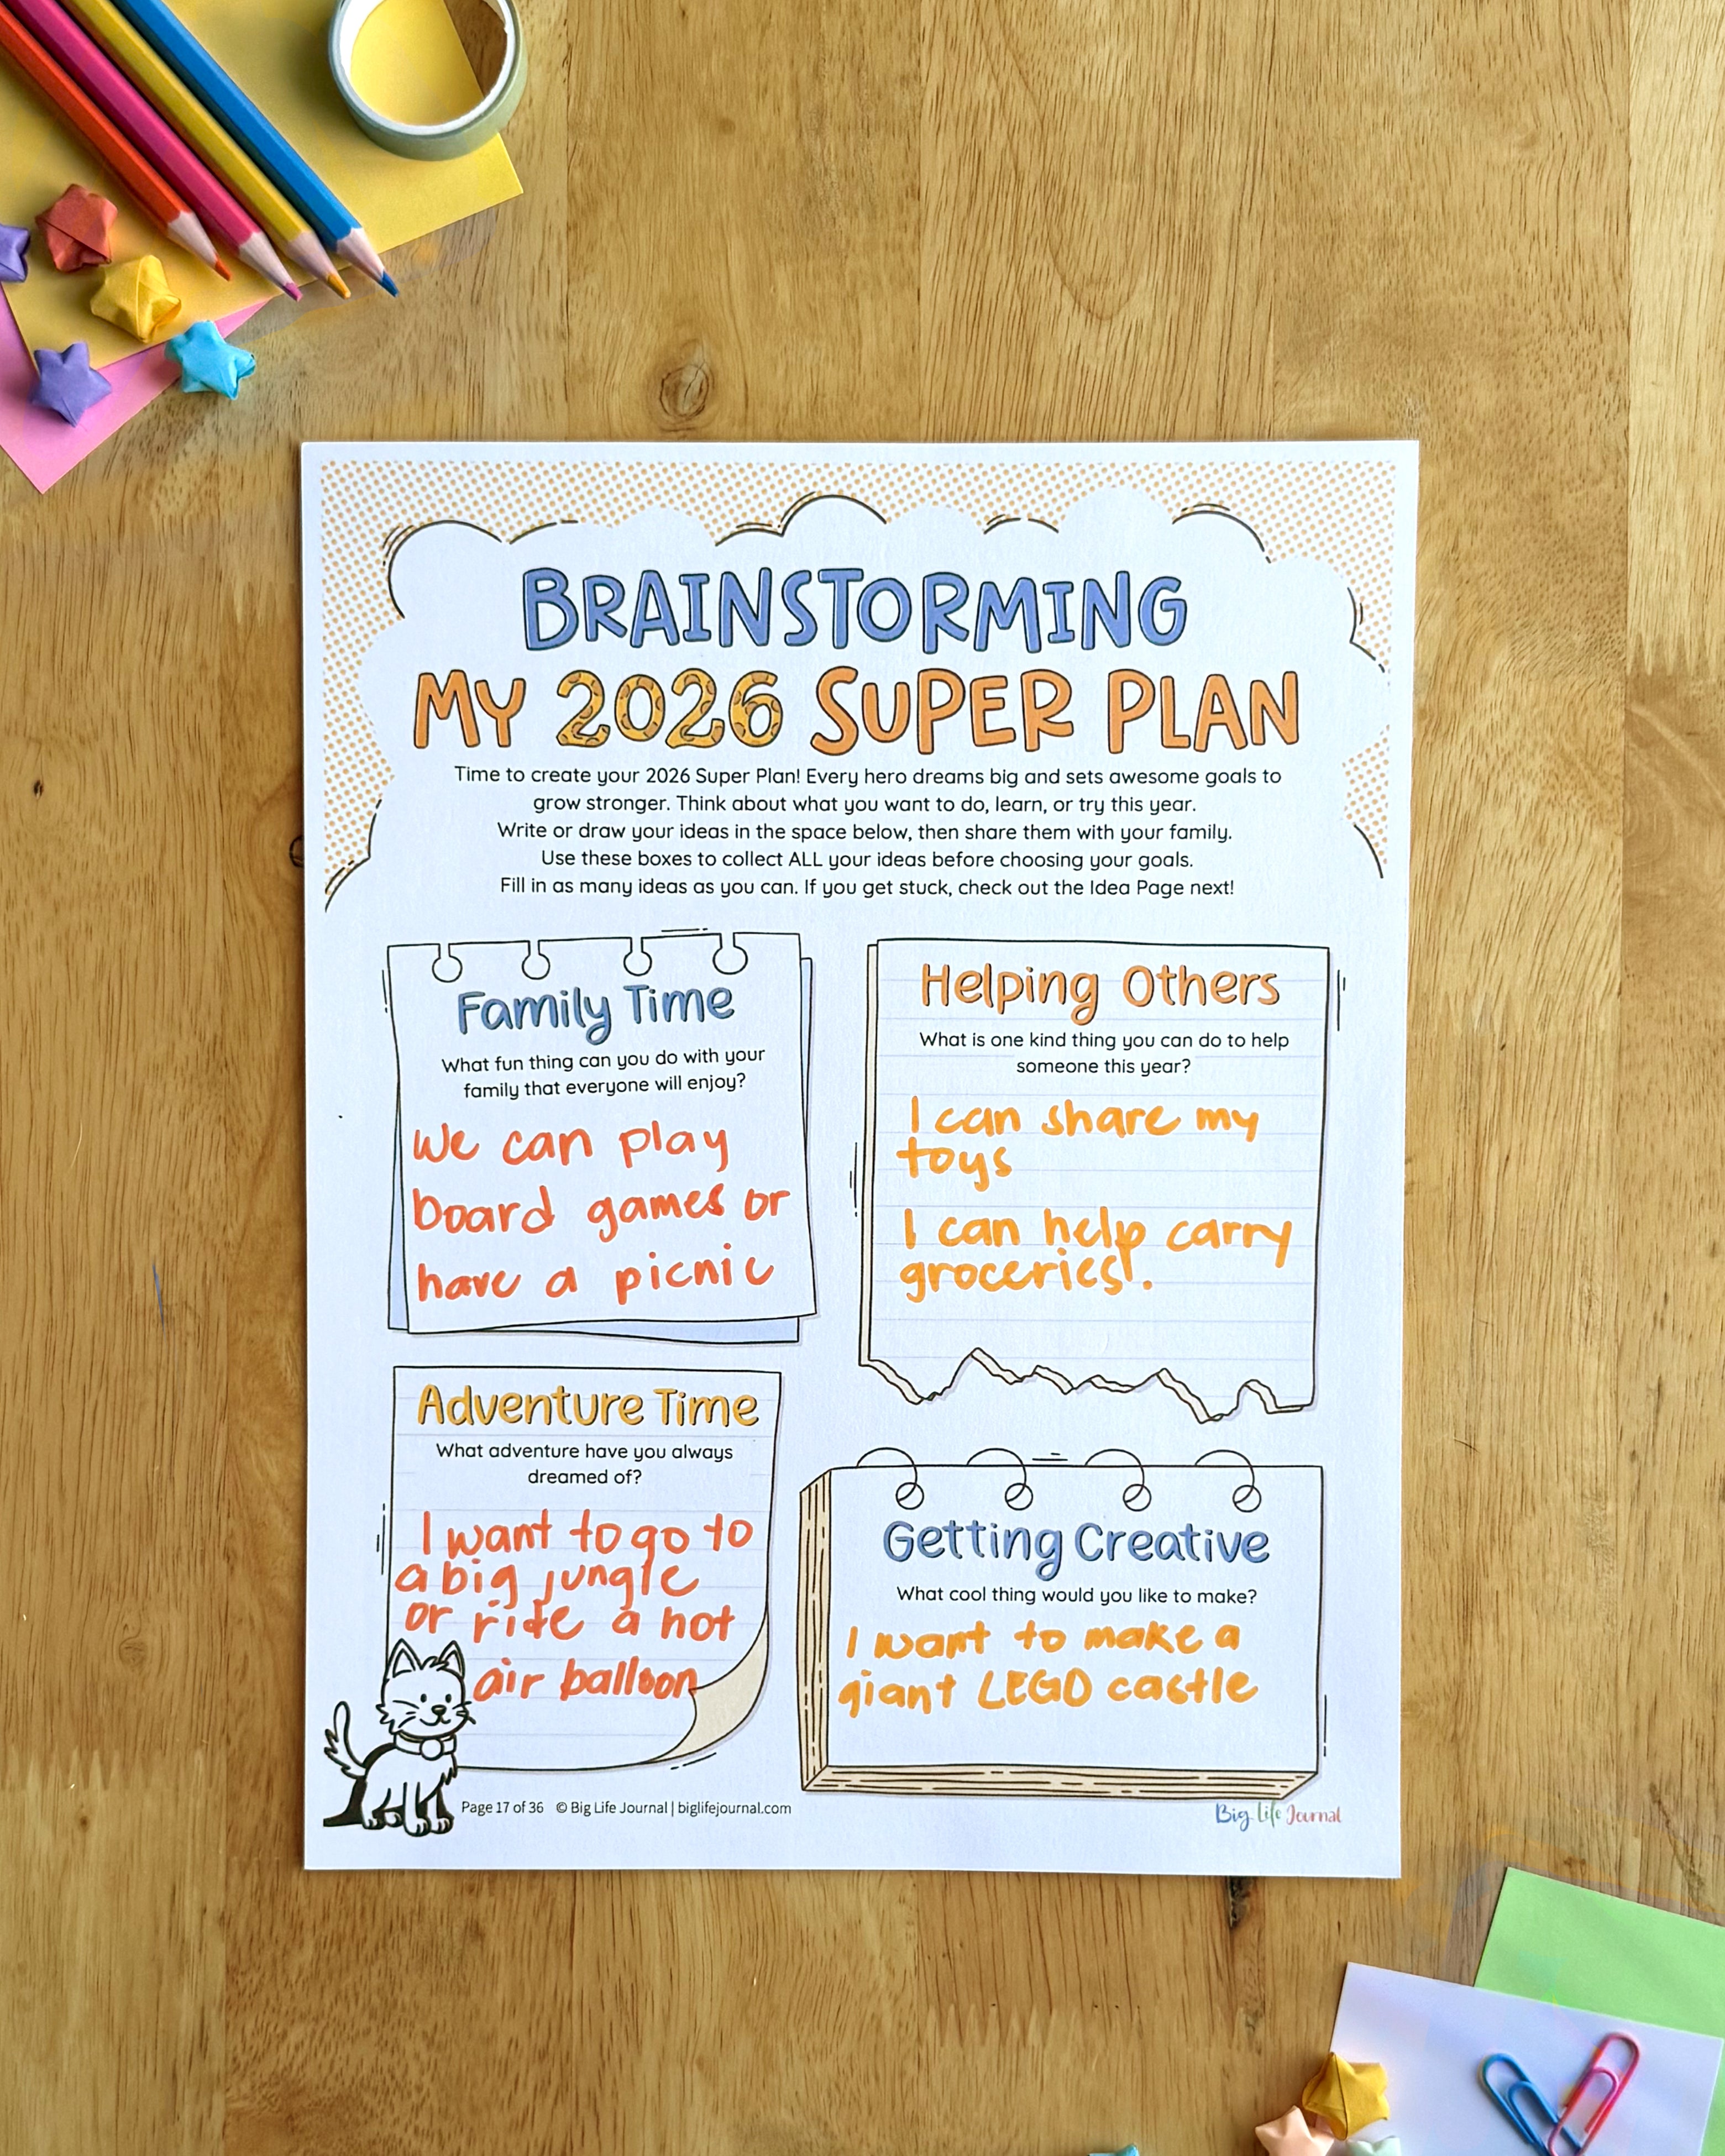 BRAINSTORMING
MY 2026 SUPER PLAN
Time to create your 2026 Super Plan! Every hero dreams big and sets awesome goals to
grow stronger. Think about what you want to do, learn, or try this year.
Write or draw your ideas in the space below, then share them with your family.
Use these boxes to collect ALL your ideas before choosing your goals.
Fill in as many ideas as you can. If you get stuck, check out the Idea Page next!
Family Time
What fun thing can you do with your
family that everyone will enjoy?
We can play
board games or
have a picnic
Helping Others
What is one kind thing you can do to help
someone this year?
I can share my
toys
I can help carry
groceries!.
Adventure Time
What adventure have you always
dreamed of?
I want to go to
a big jungle
or ride a hot
air balloon
Getting Creative
What cool thing would you like to make?
I want to make a
giant LEGO castle
Page 17 of 36 © Big Life Journal | biglifejournal.com
Big Life Journal